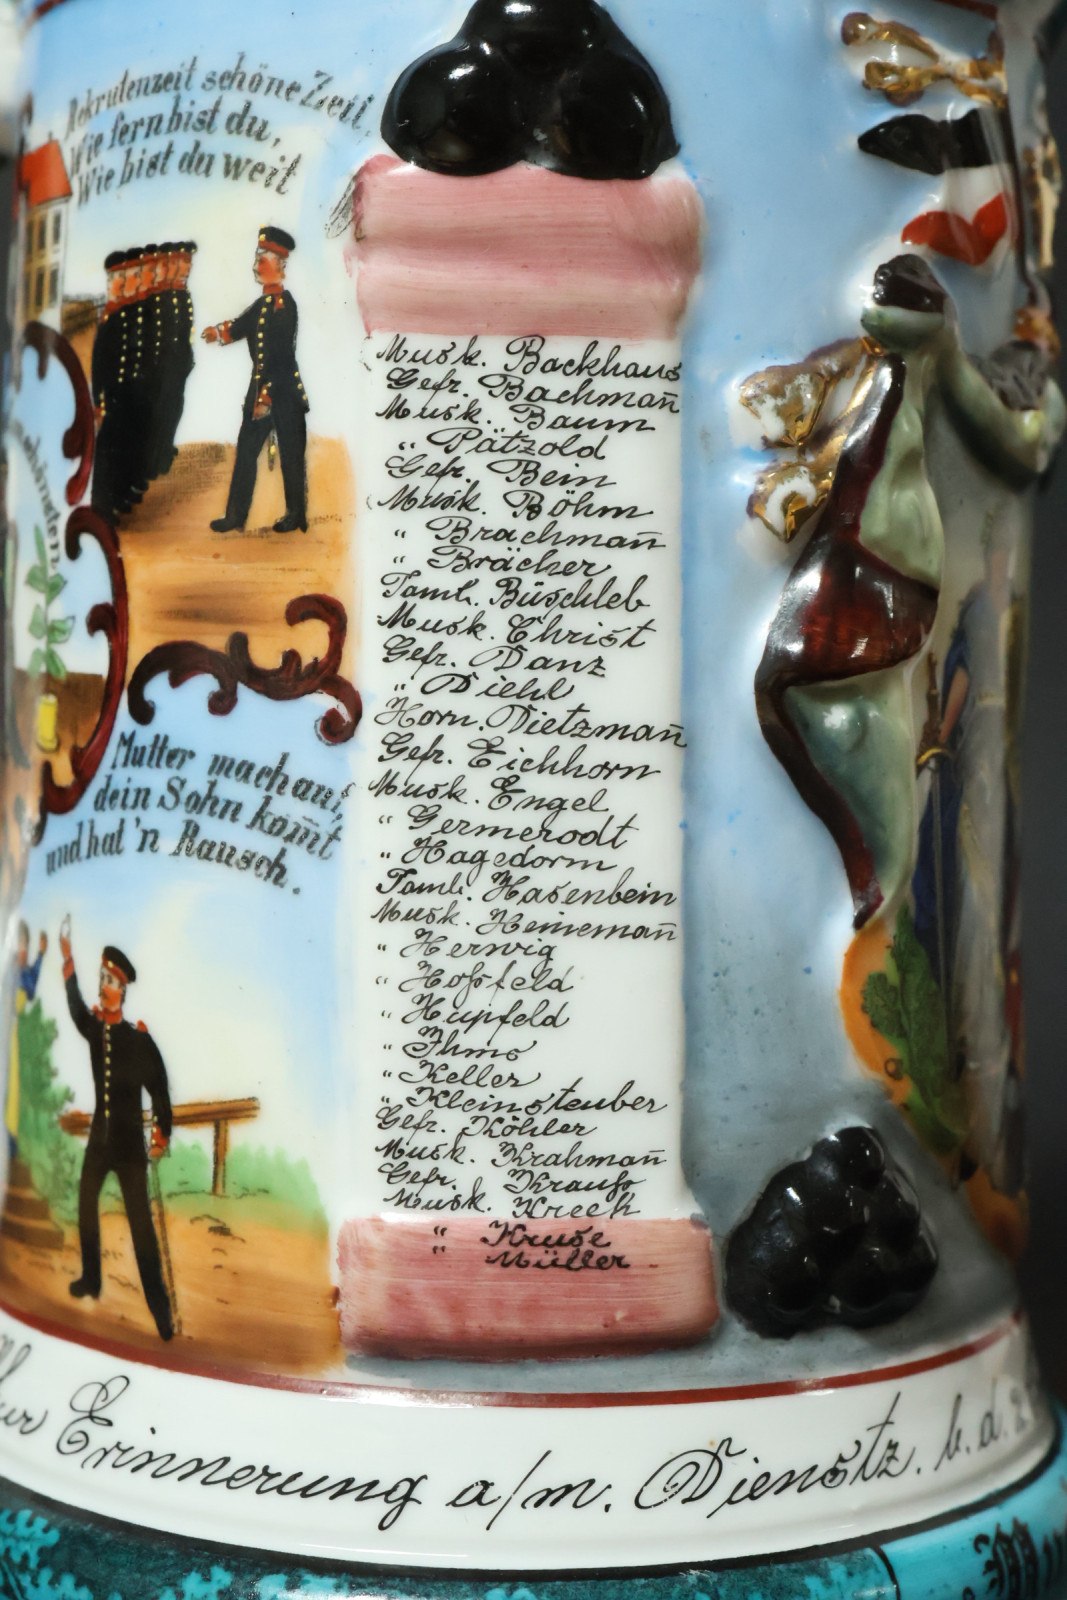 Rekrutenzeit schöne Zeit,
Wie fern bist du,
Wie bist du weit
schönsten
Mutter mach auf,
dein Sohn kom̄t
und hat 'n Rausch.
Musk. Backhaus
Gefr. Bachman̄
Musk. Baum
" Pätzold
Gefr. Bein
Musk. Böhm
" Brachman̄
" Bräcker
Tamb. Büschleb
Musk. Christ
Gefr. Danz
" Diehl
Horn. Dietzman̄
Gefr. Eichhorn
Musk. Engel
" Germerodt
" Hagedorm
Tamb. Hasenbein
Musk. Heineman̄
" Herwig
" Hoßfeld
" Hupfeld
" Ihms
" Keller
" Kleinsteuber
Gefr. Köhler
Musk. Krahman̄
Gefr. Krauß
Musk. Kreck
" Kruse
" Müller
Zur Erinnerung a/m. Dienstz. b. d.